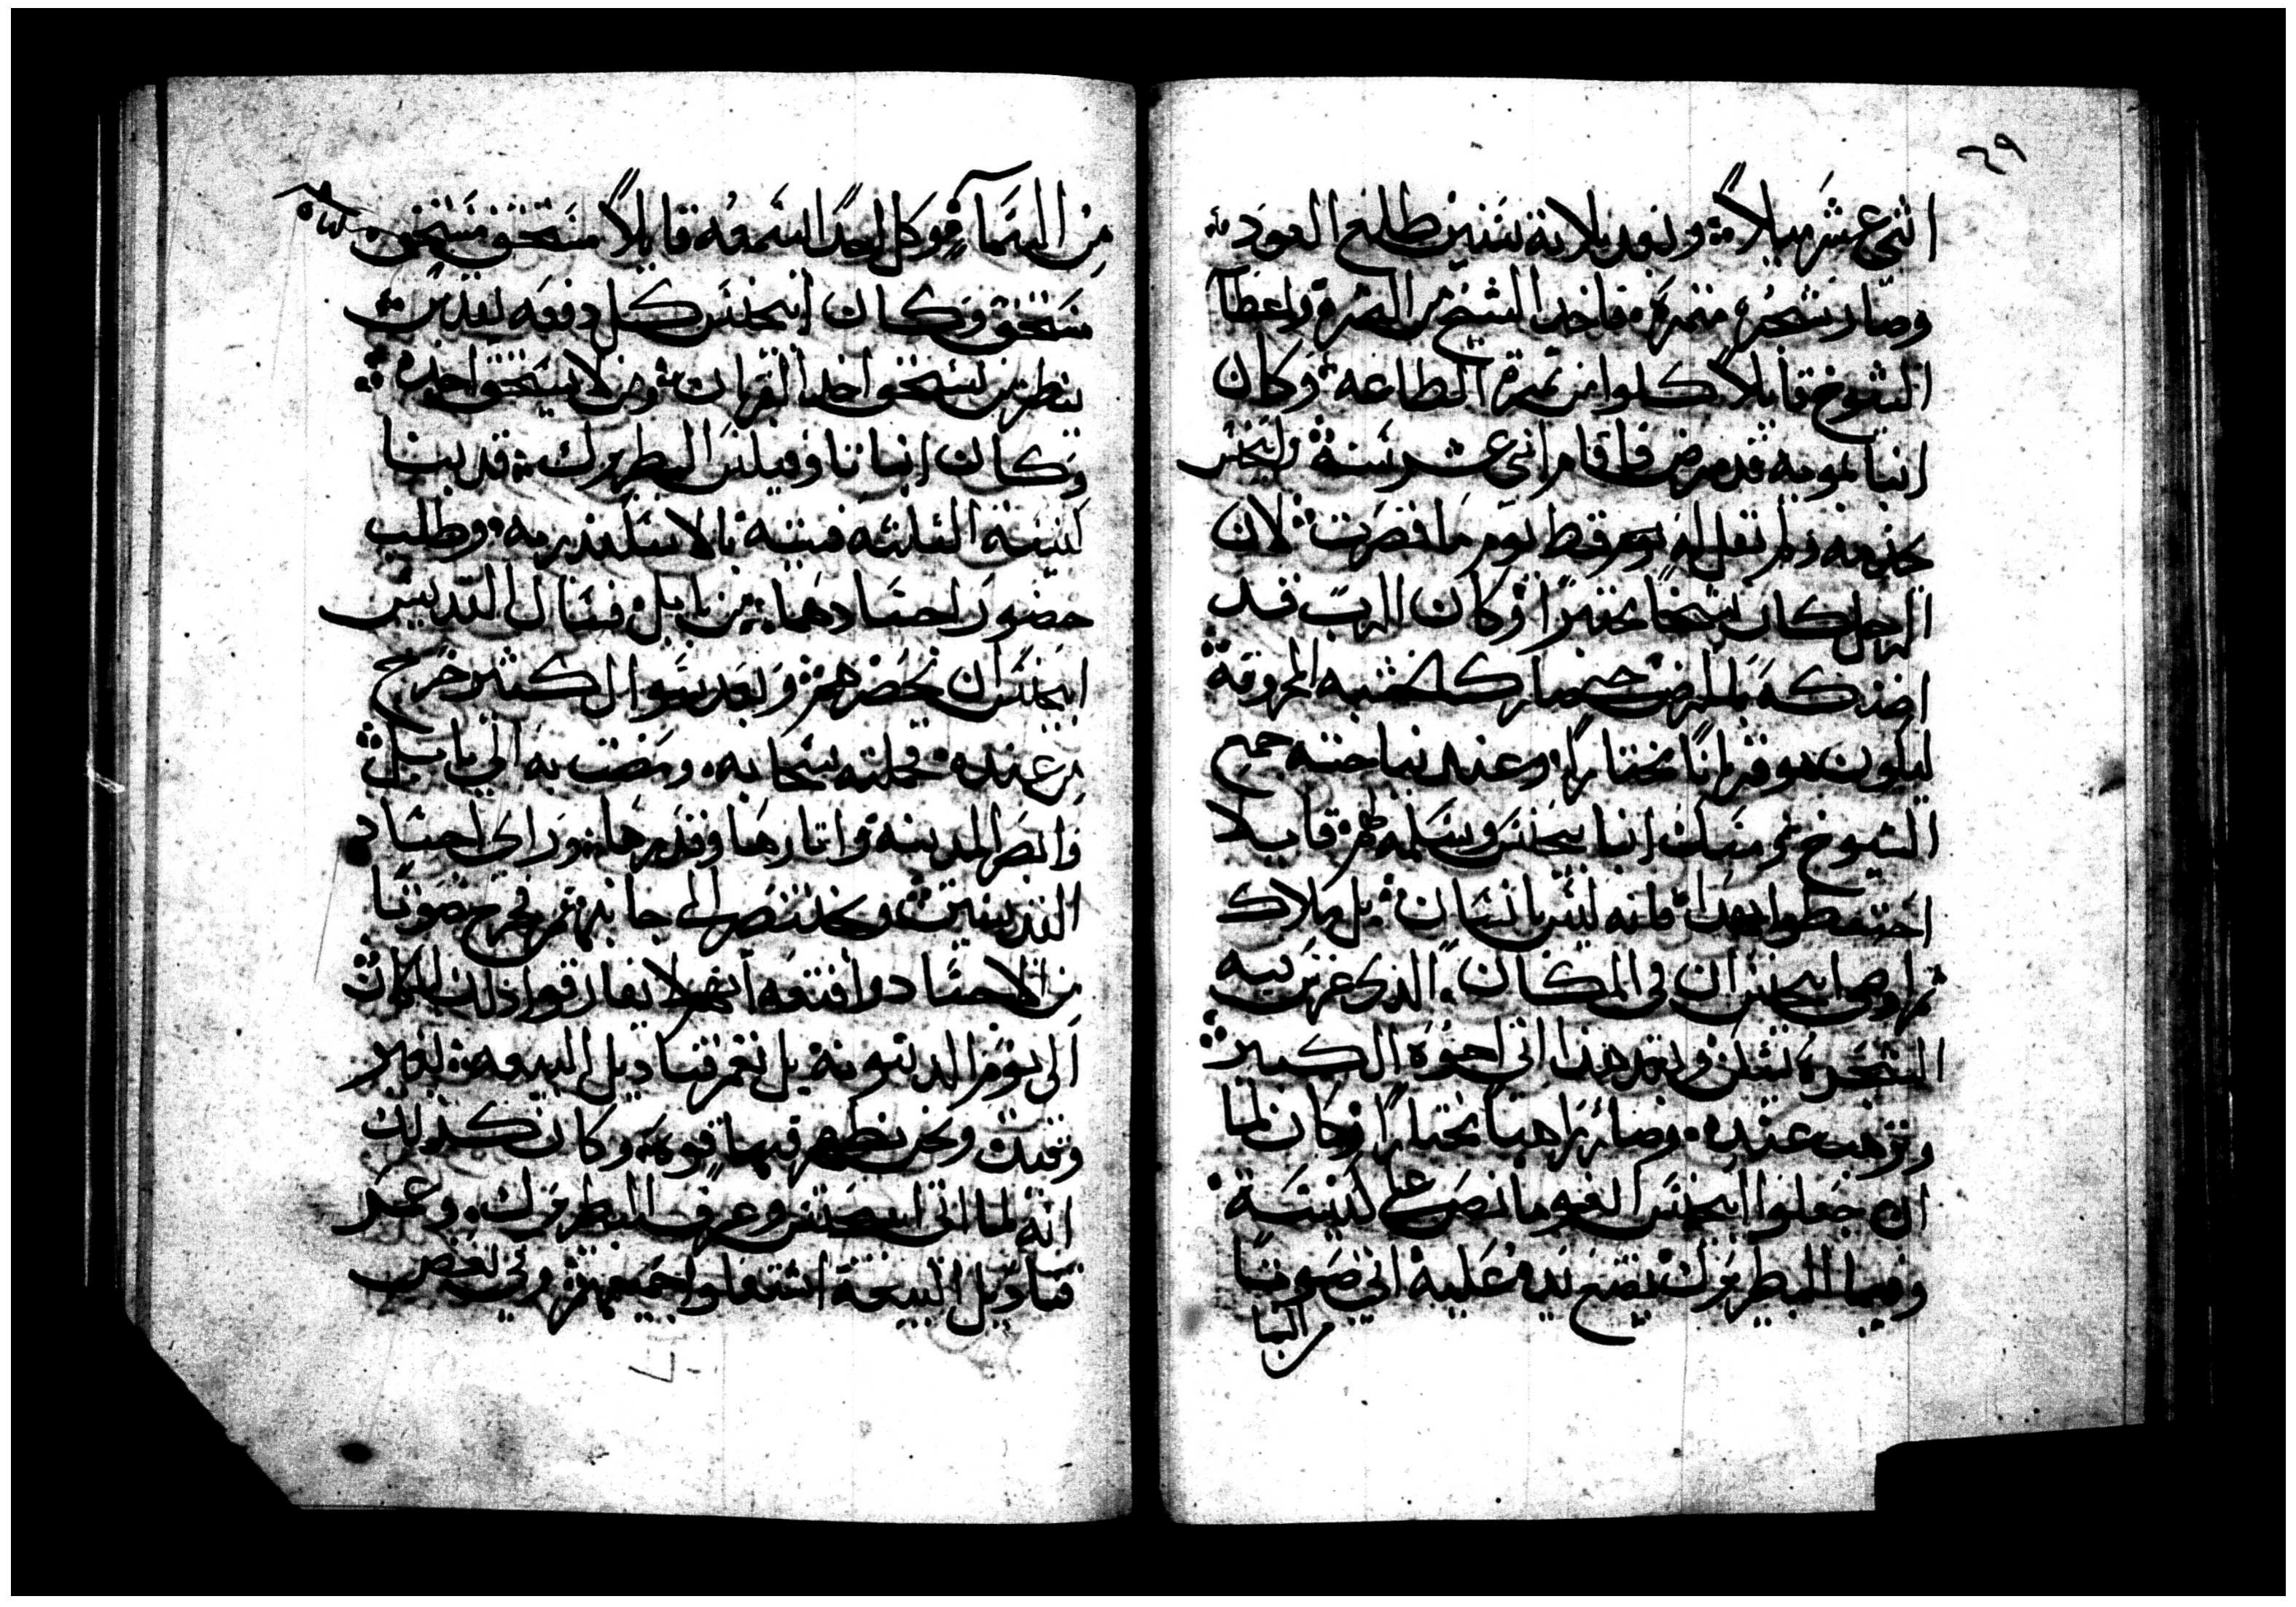 ٦٩
اثني عشر ميلاً ۞ وبعد ثلاثة سنين طلع العود
وصار شجرة مثمرة، فاخد الشيخ من الثمرة واعطا
الشيوخ قايلاً كلوا من ثمرة الطاعه وكان
انبا بمويه قد مرض فاقام اثني عشر سنة وابيحنس
يخدمه ولم يقل له يوم قط يوم ما قصرت لان
الرجل كان شيخا مختبرًا وكان الرب قد
اضنكه بالمرض حتي صار كالخشبه المحروقة
ليكون هو قربانًا مختارًا وعند نياحته جمع
الشيوخ ثم مسك انبا يحنس وسلمه لهم قايلا
احتفظوا بهدا فانه ليس بانسان بل ملاك
ثم اوصى ابيحنس ان في المكان الذي غرس فيه
الشجرة يسكن وبعد هذا اتى اخوه الكبير
وترهب عنده وصار راهبا مختارًا وكان لما
ان جعلوا ابيحنس اغومانص على كنيسة
وفيما البطريرك يضع يده عليه اتي صوتا
من السما
من السما وكل احدًا سمعه قايلاً مستحق مستحق
مستحق وكان ابيحنس كل دفعه يقدس
ينظر من يستحق اخد القربان ومن لا يستحق اخده
وكان انبا تاوفيلس البطريرك قد بنا
كنيسة الثلثه فتيه بالاسكندريه وطلب
حضور اجسادهما من بابل فسال القديس
ابيحنس ان يحضرهم وبعد سوال كثير خرج
من عنده فحملته سحابه ومضت به الي بابل
وابصر المدينة واثارها وقدم ها وراي اجساد
القديسين وبختنصر الى جانبهم فخرج صوتا
من الاجساد وافتقه انهم لا يفارقوا ذلك المكان
الى يوم الدينونة بل نعمر قناديل البيعه بغير
وقيد ونحن نظهر فيها قوه وكان كذلك
انه لما اتى ابيحنس وعرف البطريرك وعمر
قناديل البيعة اشتعلوا جميعهم وفي بعض